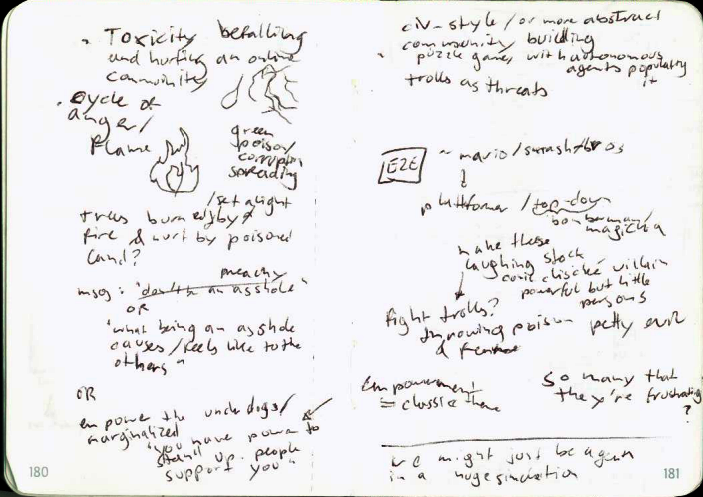 Toxicity befalling
and hurting an online
community
cycle of
anger/
flame
green
poison/
corruption
spreading
/set alight
trees burned by
fire & hurt by poisoned
land?
preachy
msg: "don't be an asshole"
OR
"what being an asshole
causes/feels like to the
others"
OR
empower the underdogs/
marginalized
"you have power to
stand up. people
support you"
180
civ-style/or more abstract
community building
puzzle games with autonomous
agents populating
it
trolls as threats
EZE
~ mario/smash bros
platformer /top-down
bomberman/
magicka
make these
laughing stock
comic clischeé villain
powerful but little
persons
fight trolls?
throwing poison petty evil
&
Empowerment
= classic theme
so many that
they're frustrating
?
we might just be agents
in a huge simulation
181